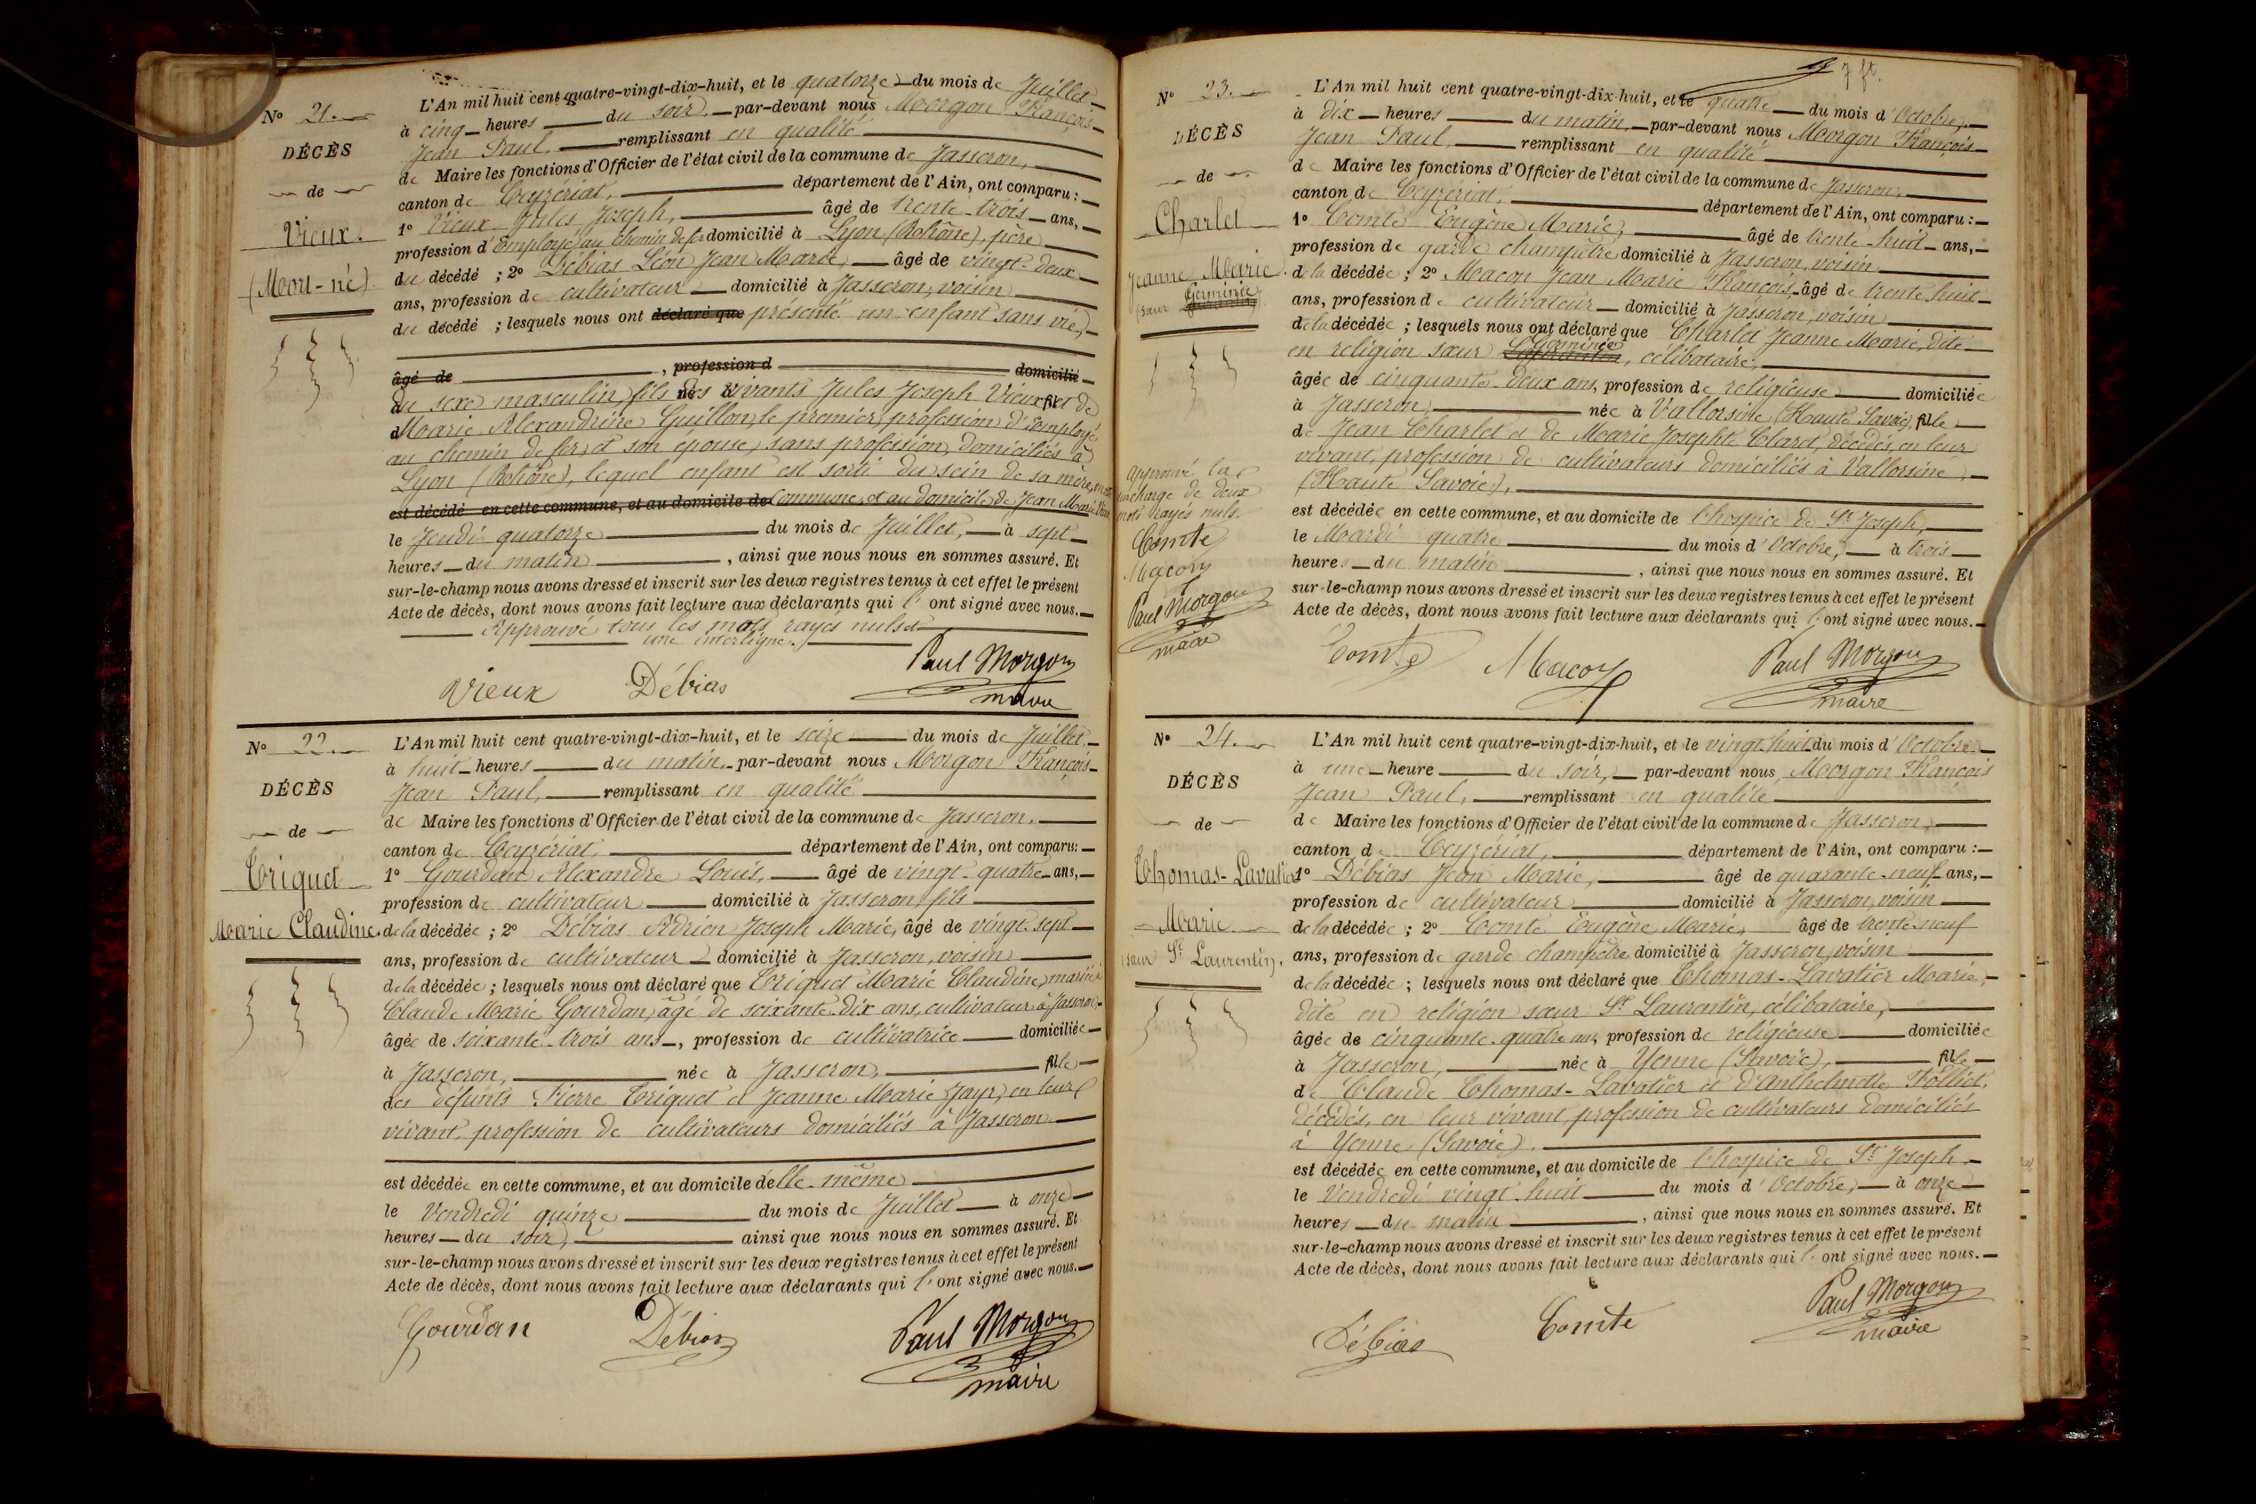 N° 21.
DÉCÈS
de
Vieux.
(Mort-né)
L'An mil huit cent quatre-vingt-dix-huit, et le quatorze du mois de Juillet
à cinq heures du soir, par-devant nous Morgon François
Jean Paul, remplissant en qualité
de Maire les fonctions d'Officier de l'état civil de la commune de Jasseron,
canton de Ceyzériat, département de l'Ain, ont comparu :
1° Vieux Jules Joseph, âgé de trente-trois ans,
profession d'Employé au chemin de fer domicilié à Lyon (Rohône), père
du décédé ; 2° Débias Léon Jean Marie âgé de vingt-deux
ans, profession de cultivateur domicilié à Jasseron, voisin
du décédé ; lesquels nous ont déclaré que présenté un enfant sans vie,
âgé de , profession d domicilié
du sexe masculin, fils des vivants Jules Joseph Vieux et de
Marie Alexandrine Guillon, le premier, profession d'Employé
au chemin de fer, et son épouse, sans profession, domiciliés à
Lyon (Rohône), lequel enfant est sorti du sein de sa mère,
est décédé en cette commune, et au domicile de commune, et au domicile de Jean Marie
le Jeudi quatorze du mois de Juillet, à sept
heures du matin , ainsi que nous nous en sommes assuré. Et
sur-le-champ nous avons dressé et inscrit sur les deux registres tenus à cet effet le présent
Acte de décès, dont nous avons fait lecture aux déclarants qui l'ont signé avec nous.
Approuvé tous les mots rayés nuls et
une interligne.
Vieux Débias Paul Morgon
maire
N° 22.
DÉCÈS
de
Triquet
Marie Claudine.
L'An mil huit cent quatre-vingt-dix-huit, et le seize du mois de Juillet
à huit heures du matin, par-devant nous Morgon François
Jean Paul, remplissant en qualité
de Maire les fonctions d'Officier de l'état civil de la commune de Jasseron,
canton de Ceyzériat, département de l'Ain, ont comparu :
1° Gourdan Alexandre Louis, âgé de vingt-quatre ans,
profession de cultivateur domicilié à Jasseron, fils
de la décédée ; 2° Débias Adrien Joseph Marie, âgé de vingt-sept
ans, profession de cultivateur domicilié à Jasseron, voisin
de la décédée ; lesquels nous ont déclaré que Triquet Marie Claudine, mariée à
Claude Marie Gourdan, âgé de soixante-dix ans, cultivateur à Jasseron,
âgée de soixante-trois ans, profession de cultivatrice domiciliée
à Jasseron, née à Jasseron, fille
des défunts Pierre Triquet et Jeanne Marie Jayr, en leur
vivant, profession de cultivateurs domiciliés à Jasseron
est décédée en cette commune, et au domicile d'elle-même
le Vendredi quinze du mois de Juillet à onze
heures du soir, ainsi que nous nous en sommes assuré. Et
sur-le-champ nous avons dressé et inscrit sur les deux registres tenus à cet effet le présent
Acte de décès, dont nous avons fait lecture aux déclarants qui l'ont signé avec nous.
Gourdan Débias Paul Morgon
maire
7 ft.
N° 23.
DÉCÈS
de
Charlet
Jeanne Marie.
(sœur Germinie)
L'An mil huit cent quatre-vingt-dix-huit, et le quatre du mois d'Octobre,
à dix heures du matin, par-devant nous Morgon François
Jean Paul, remplissant en qualité
de Maire les fonctions d'Officier de l'état civil de la commune de Jasseron,
canton de Ceyzériat, département de l'Ain, ont comparu :
1° Comte Eugène Marie, âgé de trente-huit ans,
profession de garde champêtre domicilié à Jasseron, voisin
de la décédée ; 2° Macon Jean Marie François, âgé de trente huit
ans, profession de cultivateur domicilié à Jasseron, voisin
de la décédée ; lesquels nous ont déclaré que Charlet Jeanne Marie, dite
en religion sœur Germinie, célibataire,
âgée de cinquante-deux ans, profession de religieuse domiciliée
à Jasseron, née à Vallorsine (Haute Savoie), fille
de Jean Charlet et de Marie Josephte Claret, décédés, en leur
vivant, profession de cultivateurs domiciliés à Vallorsine,
(Haute Savoie),
est décédée en cette commune, et au domicile de l'hospice de St Joseph,
le Mardi quatre du mois d'Octobre, à trois
heures du matin , ainsi que nous nous en sommes assuré. Et
sur-le-champ nous avons dressé et inscrit sur les deux registres tenus à cet effet le présent
Acte de décès, dont nous avons fait lecture aux déclarants qui l'ont signé avec nous.
Approuvé la
surcharge de deux
mots rayés nuls.
Comte
Macon
Paul Morgon
maire
Comte Macon Paul Morgon
maire
N° 24.
DÉCÈS
de
Thomas-Lavatier
Marie
(sœur St Laurentin).
L'An mil huit cent quatre-vingt-dix-huit, et le vingt huit du mois d'Octobre
à une heure du soir, par-devant nous Morgon François
Jean Paul, remplissant en qualité
de Maire les fonctions d'Officier de l'état civil de la commune de Jasseron,
canton de Ceyzériat, département de l'Ain, ont comparu :
1° Débias Jean Marie, âgé de quarante-neuf ans,
profession de cultivateur domicilié à Jasseron, voisin
de la décédée ; 2° Comte Eugène Marie, âgé de trente-neuf
ans, profession de garde champêtre domicilié à Jasseron, voisin
de la décédée ; lesquels nous ont déclaré que Thomas-Lavatier Marie,
dite en religion sœur St Laurentin, célibataire,
âgée de cinquante-quatre ans, profession de religieuse domiciliée
à Jasseron, née à Yenne (Savoie), fille
de Claude Thomas-Lavatier et d'Anthelmette Folliet,
décédés, en leur vivant, profession de cultivateurs domiciliés
à Yenne (Savoie).
est décédée en cette commune, et au domicile de l'hospice de St Joseph
le Vendredi vingt-huit du mois d'Octobre, à onze
heures du matin , ainsi que nous nous en sommes assuré. Et
sur-le-champ nous avons dressé et inscrit sur les deux registres tenus à cet effet le présent
Acte de décès, dont nous avons fait lecture aux déclarants qui l'ont signé avec nous.
Débias Comte Paul Morgon
maire